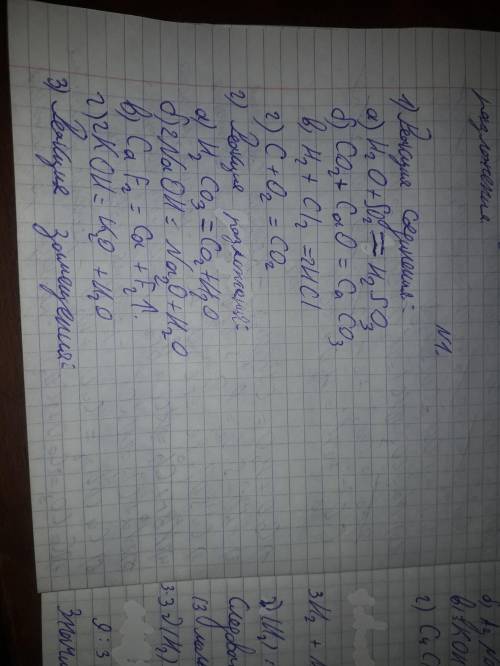 разложения
N1.
1) Реакция соединения:
а) H₂O + SO₂ = H₂SO₃
б) CO₂ + CaO = CaCO₃
в) H₂ + Cl₂ = 2HCl
г) C + O₂ = CO₂
2) Реакция разложения:
а) H₂CO₃ = CO₂ + H₂O
б) 2NaOH = Na₂O + H₂O
в) CaF₂ = Ca + F₂↑.
г) 2KOH = K₂O + H₂O
3) Реакция замещения:
3H₂ +
Следов
9:3